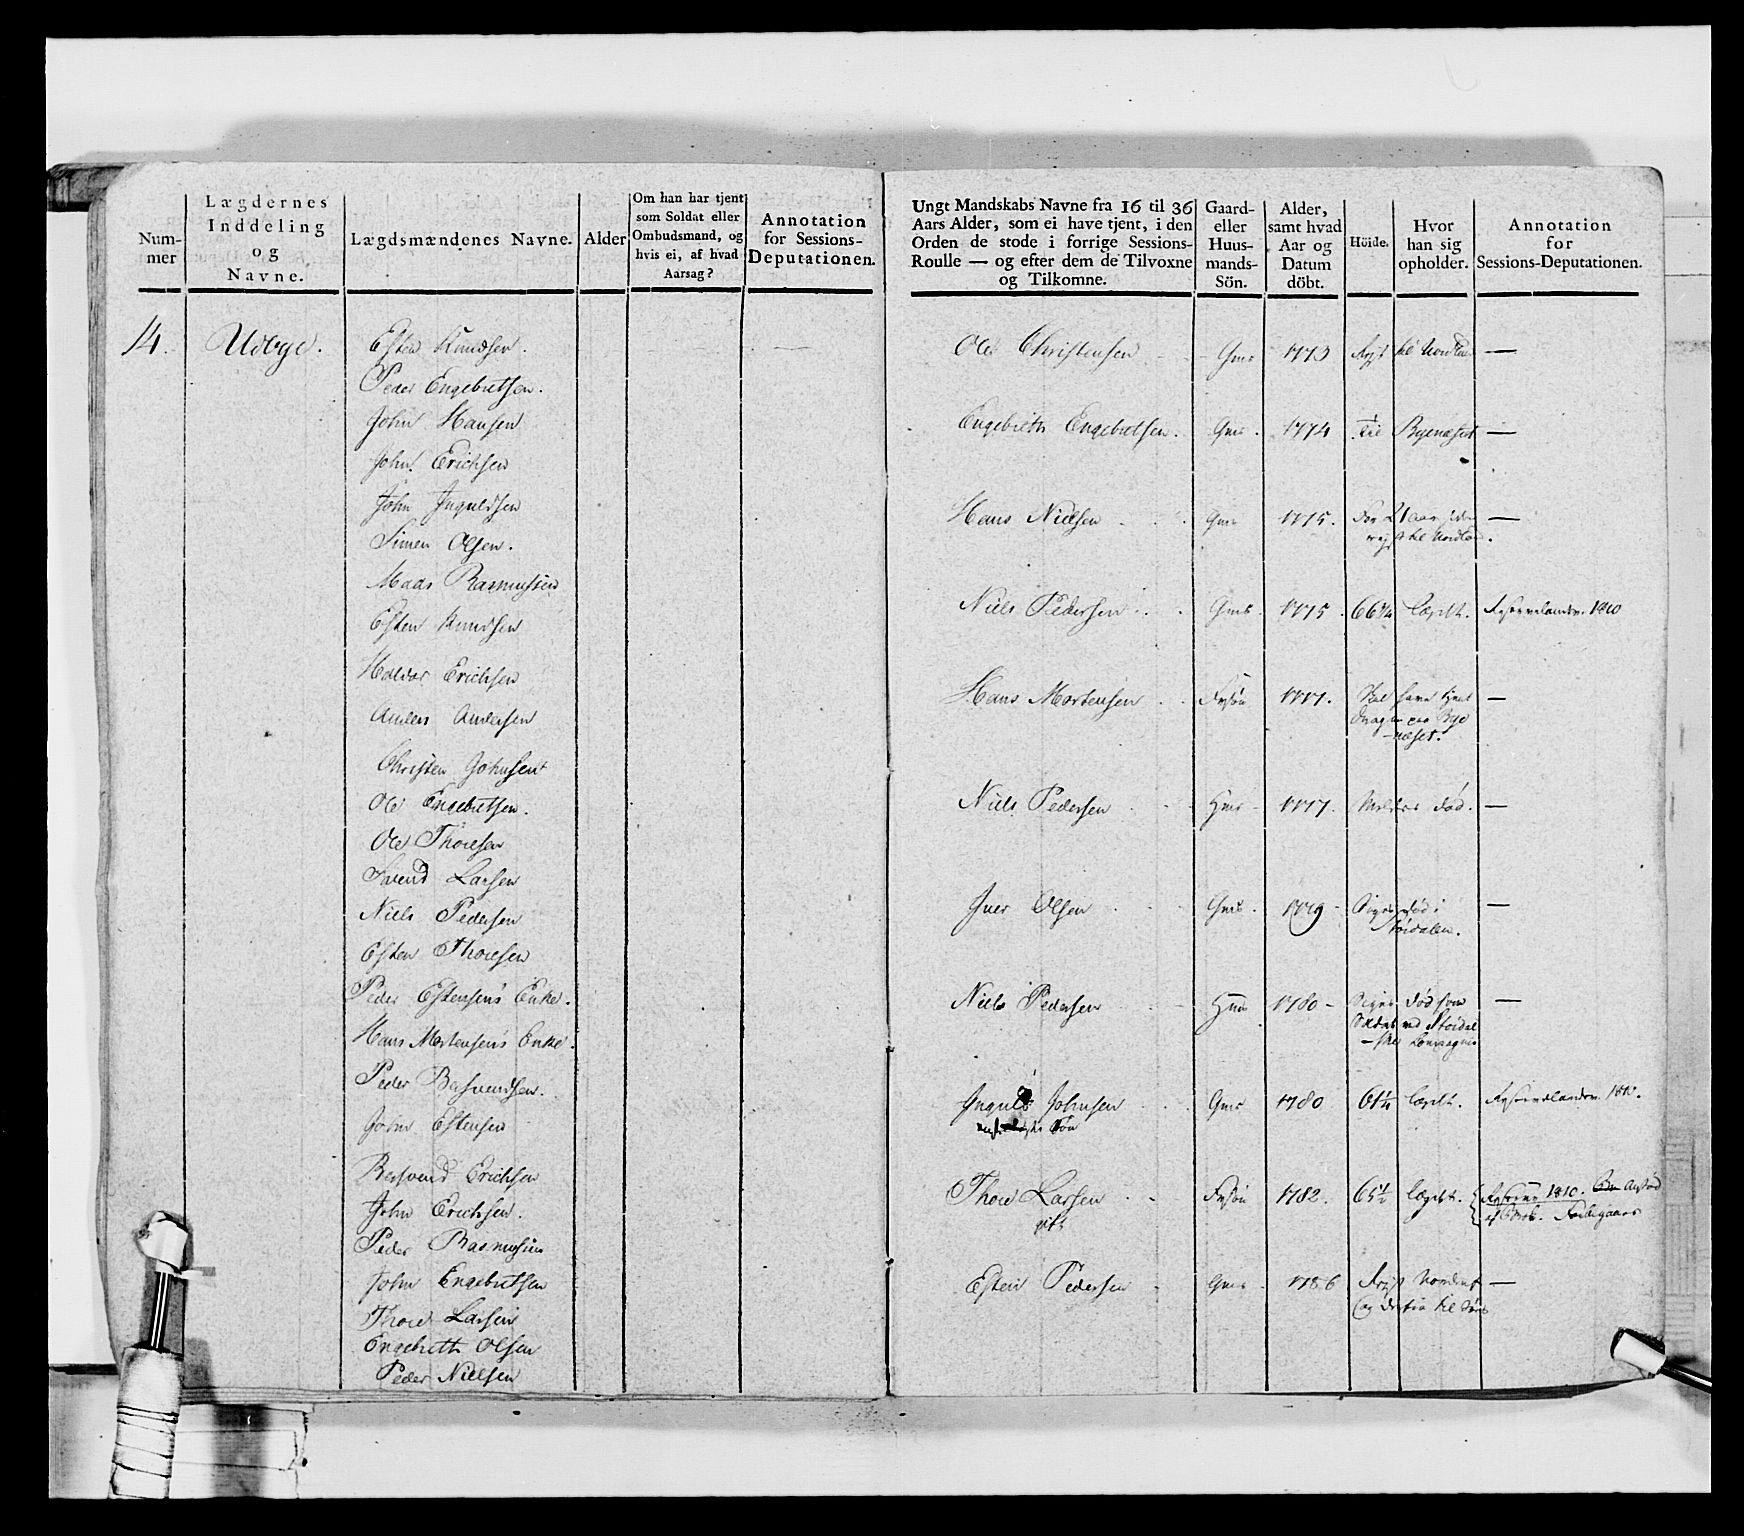 Num-
mer
Lægdernes
Inddeling
og
Navne.
Lægdsmændenes Navne.
Alder
Om han har tjent
som Soldat eller
Ombudsmand, og
hvis ei, af hvad
Aarsag?
Annotation
for Sessions-
Deputationen.
14. Udbye.
Esten Knudsen.
Peder Engebretsen.
John Hansen
John Erichsen
John Inguldsen
Simen Olsen.
Mads Rasmussen
Esten Knudsen
Haldor Erichsen
Anders Andersen
Christen Johnsen
Ole Engebretsen.
Ole Thoresen
Svend Larsen
Niels Pedersen
Esten Thoresen
Peder Estensens Enke.
Hans Mortensens Enke.
Peder Basvendsen.
John Estensen
Basvend Erichsen
John Erichsen.
Peder Rasmussen
John Engebretsen
Thore Larsen
Engebreth Olsen
Peder Nielsen
Ungt Mandskabs Navne fra 16 til 36
Aars Alder, som ei have tjent, i den
Orden de stode i forrige Sessions-
Roulle — og efter dem de Tilvoxne
og Tilkomne.
Gaard-
eller
Huus-
mands-
Sön.
Alder,
samt hvad
Aar og
Datum
döbt.
Höide.
Hvor
han sig
opholder.
Annotation
for
Sessions-Deputationen.
Ole Christensen Gms 1773 Rejst til Nordland —
Engebreth Engebretsen. Gms. 1774 til Byenæset —
Hans Nielsen Gms 1775. For 21 aar siden —
rejst til Nordland.
Niels Pedersen Gms. 1775. 66 3/4 Lægdet. Reservelandev. 1810
Hans Mortensen 1777. Skal have tjent —
Dragon paa Bye
-næset.
Niels Pedersen Hms 1777. Meldes død. —
Iver Olsen Gms. 1779 Siges død i —
Støidalen.
Niels Pedersen Hms 1780 Siges død som —
Soldat ved Støidal
-ske Compagnie
Inguld Johnsen Gms 1780 61 1/4 Lægdet. Reservelandev. 1810.
Søn
Thore Larsen 1782. 65 1/2 Lægdet. 1810.
gift
Esten Pedersen Gms. 1786 Rejst —